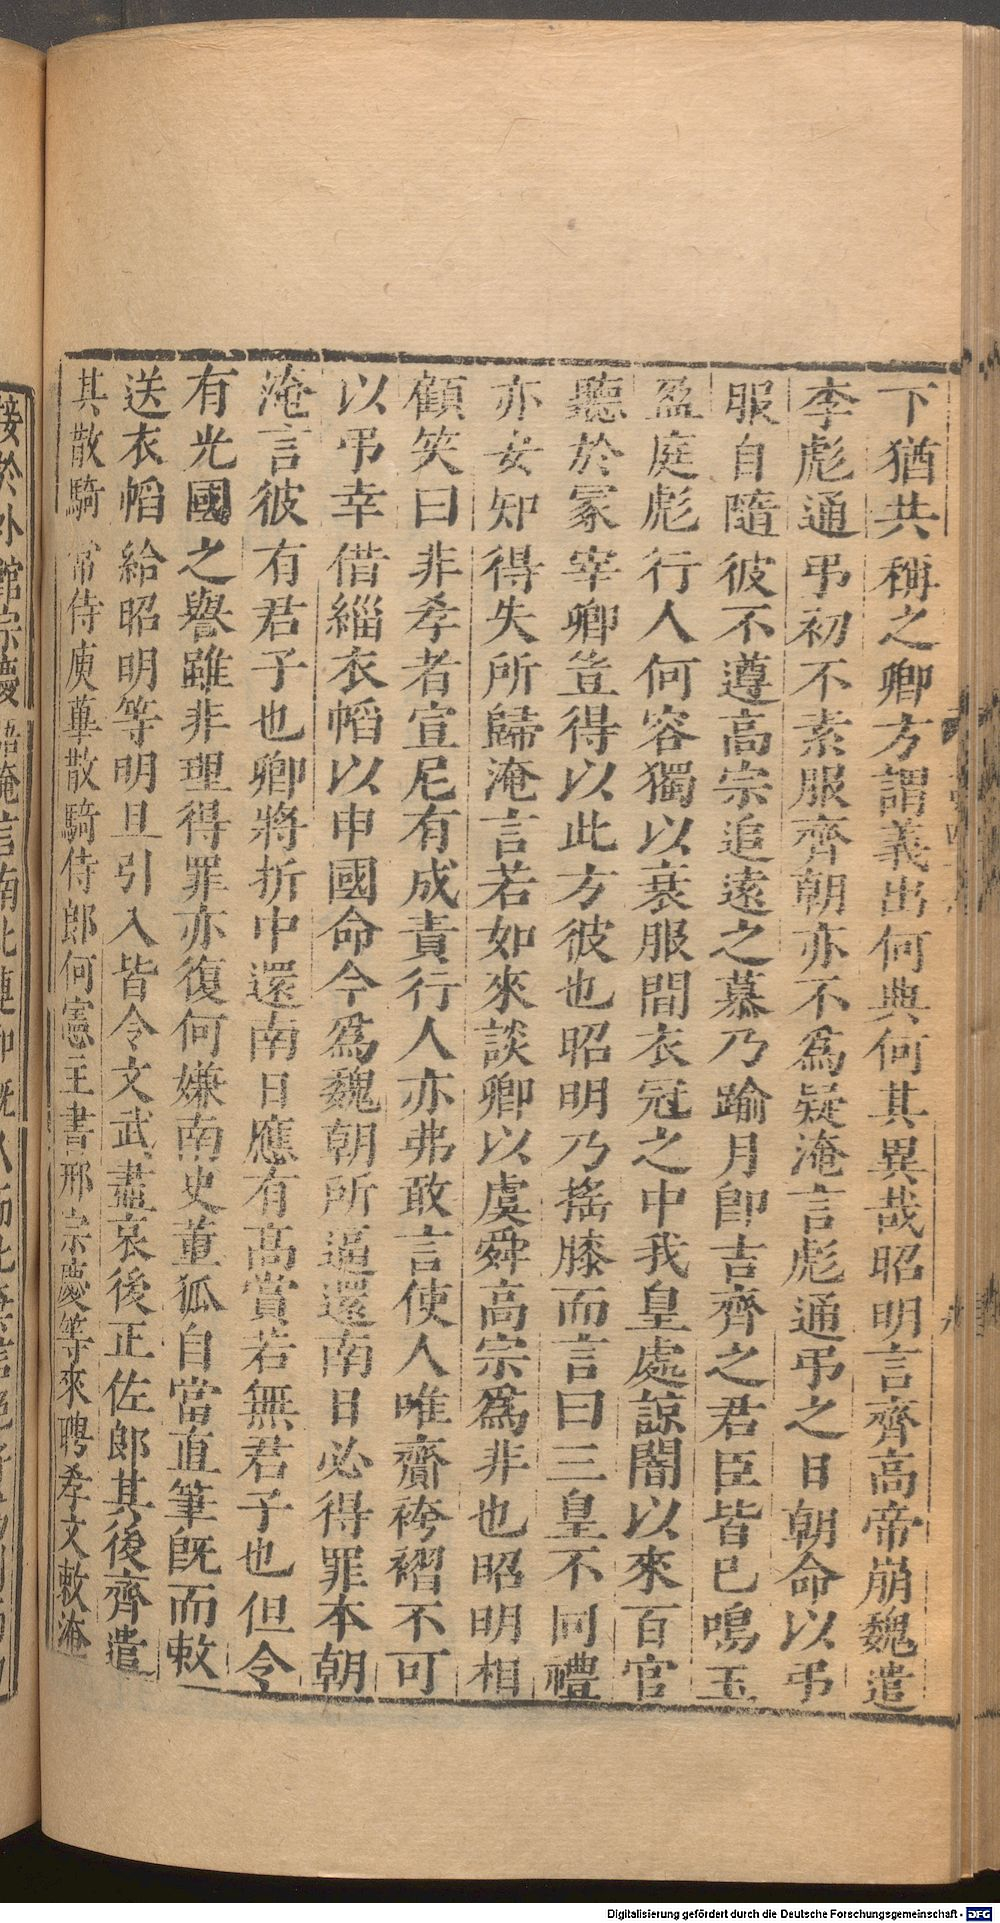 下猶共稱之卿方謂義出何典何其異哉昭明言齊高帝崩魏遣
李彪通弔初不素服齊朝亦不爲疑淹言彪通弔之日朝命以弔
服自隨彼不遵高宗追遠之慕乃踰月即吉齊之君臣皆已鳴玉
盈庭彪行人何容獨以衰服間衣冠之中我皇處諒闇以來百官
聽於冢宰卿豈得以此方彼也昭明乃搖膝而言曰三皇不同禮
亦安知得失所歸淹言若如來談卿以虞舜高宗爲非也昭明相
顧笑曰非孝者宣尼有成責行人亦弗敢言使人唯齎袴褶不可
以弔幸借緇衣幍以申國命今爲魏朝所逼還南日必得罪本朝
淹言彼有君子也卿將折中還南日應有高賞若無君子也但令
有光國之譽雖非理得罪亦復何嫌南史董狐自當直筆旣而敕
送衣幍給昭明等明旦引入皆令文武盡哀後正佐郎其後齊遣
其散騎常侍庾蓽散騎侍郎何憲主書邢宗慶等來聘孝文敕淹
接於外館宗慶語淹言南北連和旣
Digitalisierung gefördert durch die Deutsche Forschungsgemeinschaft - DFG